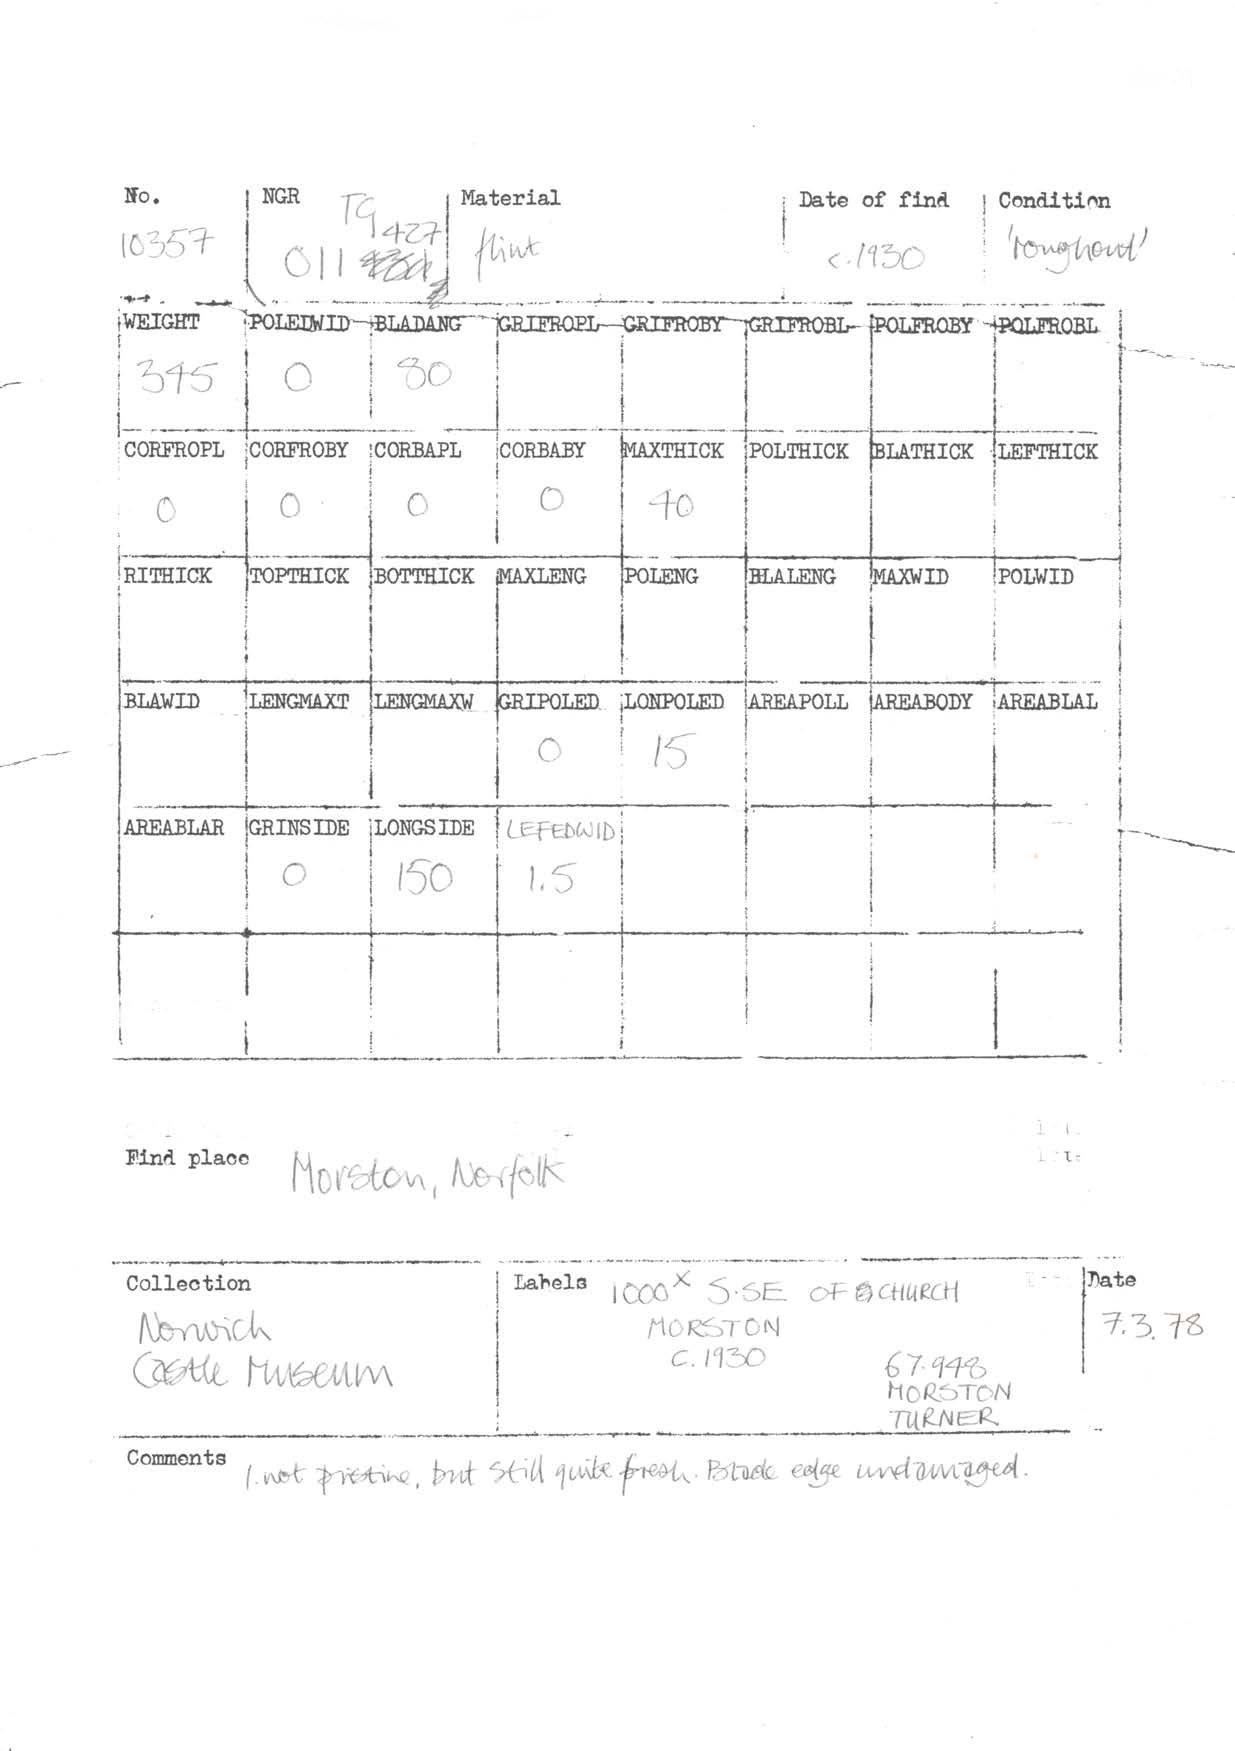 No. NGR Material Date of find Condition
10357 TG 427 011 flint c.1930 'roughout'
WEIGHT POLEDWID BLADANG GRIFROPL GRIFROBY GRIFROBL POLFROBY POLFROBL
345 0 80
CORFROPL CORFROBY CORBAPL CORBABY MAXTHICK POLTHICK BLATHICK LEFTHICK
0 0 0 0 40
RITHICK TOPTHICK BOTTHICK MAXLENG POLENG BLALENG MAXWID POLWID
BLAWID LENGMAXT LENGMAXW GRIPOLED LONPOLED AREAPOLL AREABODY AREABLAL
0 15
AREABLAR GRINSIDE LONGSIDE LEFEDWID
0 150 1.5
Find place Morston, Norfolk
Collection Labels 1000x S.SE OF CHURCH Date
Norwich MORSTON 7.3.78
Castle Museum c.1930 67.948
MORSTON
TURNER
Comments 1. not pristine, but still quite fresh. Blade edge undamaged.